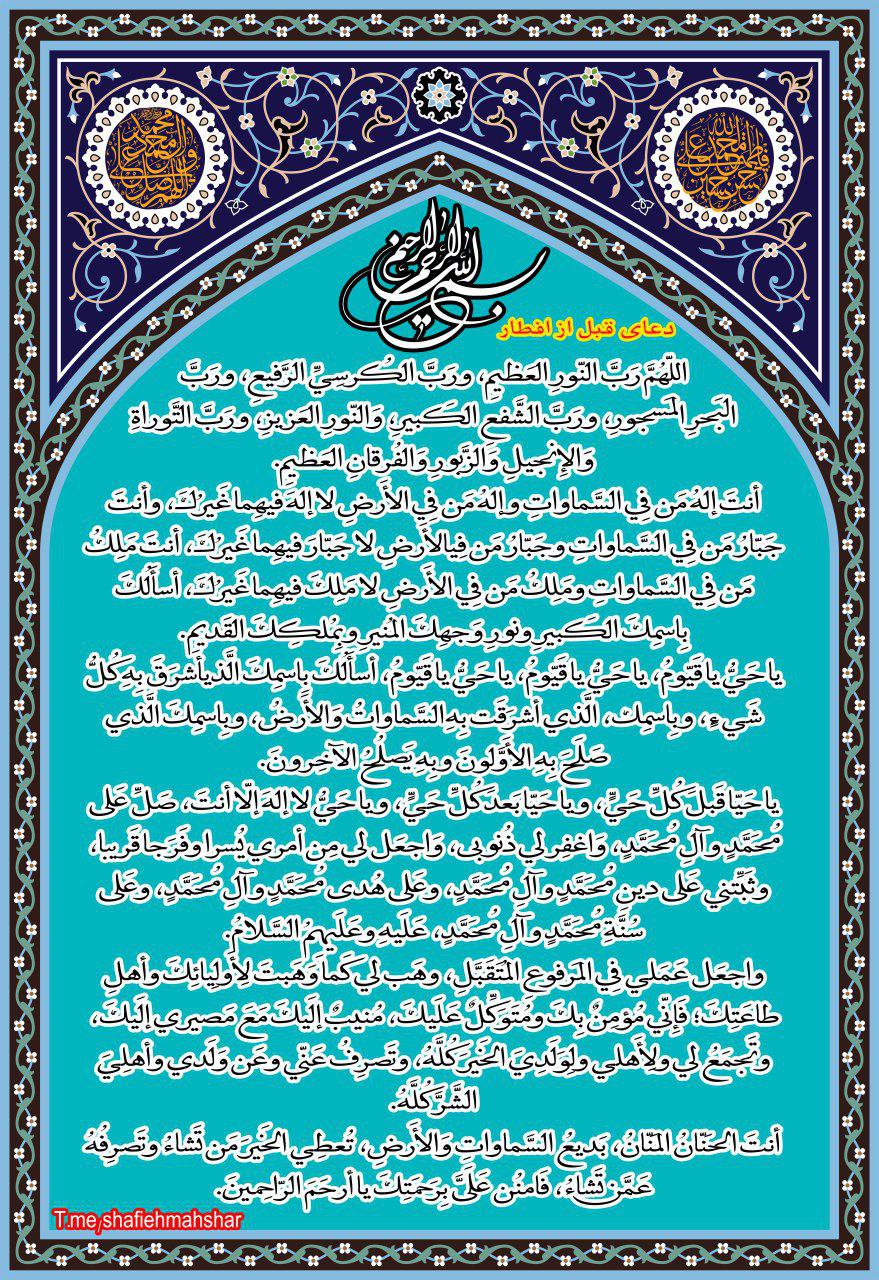 بسم الله الرحمن الرحیم
دعای قبل از افطار
اللّهُمَّ رَبَّ النّورِ العَظيمِ، ورَبَّ الكُرسِيِّ الرَّفيعِ، ورَبَّ
البَحرِ المَسجورِ، ورَبَّ الشَّفعِ الكَبيرِ، وَالنّورِ العَزيزِ، ورَبَّ التَّوراةِ
وَالإِنجيلِ وَالزَّبورِ وَالفُرقانِ العَظيمِ.
أنتَ إلهُ مَن فِي السَّماواتِ وإلهُ مَن فِي الأَرضِ لا إلهَ فيهِما غَيرُكَ، وأنتَ
جَبّارُ مَن فِي السَّماواتِ وجَبّارُ مَن فِيالأَرضِ لا جَبّارَ فيهِما غَيرُكَ، أنتَ مَلِكُ
مَن فِي السَّماواتِ ومَلِكُ مَن فِي الأَرضِ لا مَلِكَ فيهِما غَيرُكَ، أسأَلُكَ
بِاسمِكَ الكَبيرِ ونورِ وَجهِكَ المُنيرِ وبِمُلكِكَ القَديمِ.
ياحَيُّ ياقَيّومُ، ياحَيُّ ياقَيّومُ، ياحَيُّ ياقَيّومُ، أسأَلُكَ بِاسمِكَ الَّذيأشرَقَ بِهِ كُلُّ
شَيءٍ، وبِاسمِكَ، الَّذي أشرَقَت بِهِ السَّماواتُ وَالأَرضُ، وبِاسمِكَ الَّذي
صَلَحَ بِهِ الأَوَّلونَ وبِهِ يَصلُحُ الآخِرونَ.
ياحَيّا قَبلَ كُلِّ حَيٍّ، وياحَيّا بَعدَ كُلِّ حَيٍّ، وياحَيُّ لا إلهَ إلّا أنتَ، صَلِّ عَلى
مُحَمَّدٍ وآلِ مُحَمَّدٍ، وَاغفِر لي ذُنوبى، وَاجعَل لي مِن أمري يُسرا وفَرَجا قَريبا،
وثَبِّتني عَلى دينِ مُحَمَّدٍ وآلِ مُحَمَّدٍ، وعَلى هُدى مُحَمَّدٍ وآلِ مُحَمَّدٍ، وعَلى
سُنَّةِ مُحَمَّدٍ وآلِ مُحَمَّدٍ، عَلَيهِ وعَلَيهِمُ السَّلامُ.
واجعَل عَمَلي فِي المَرفوعِ المُتَقَبَّلِ، وهَب لي كَما وَهَبتَ لِأَولِيائِكَ وأهلِ
طاعَتِكَ؛ فَإِنّي مُؤمِنٌ بِكَ ومُتَوَكِّلٌ عَلَيكَ، مُنيبٌ إلَيكَ مَعَ مَصيري إلَيكَ،
وتَجمَعُ لي ولِأَهلي ولِوَلَدِيَ الخَيرَ كُلَّهُ، وتَصرِفُ عَنّي وعَن وَلَدي وأهلِيَ
الشَّرَّ كُلَّهُ.
أنتَ الحَنّانُ المَنّانُ، بَديعُ السَّماواتِ وَالأَرضِ، تُعطِي الخَيرَ مَن تَشاءُ وتَصرِفُهُ
عَمَّن تَشاءُ، فَامنُن عَلَيَّ بِرَحمَتِكَ يا أرحَمَ الرّاحِمينَ.
T.me/shafiehmahshar